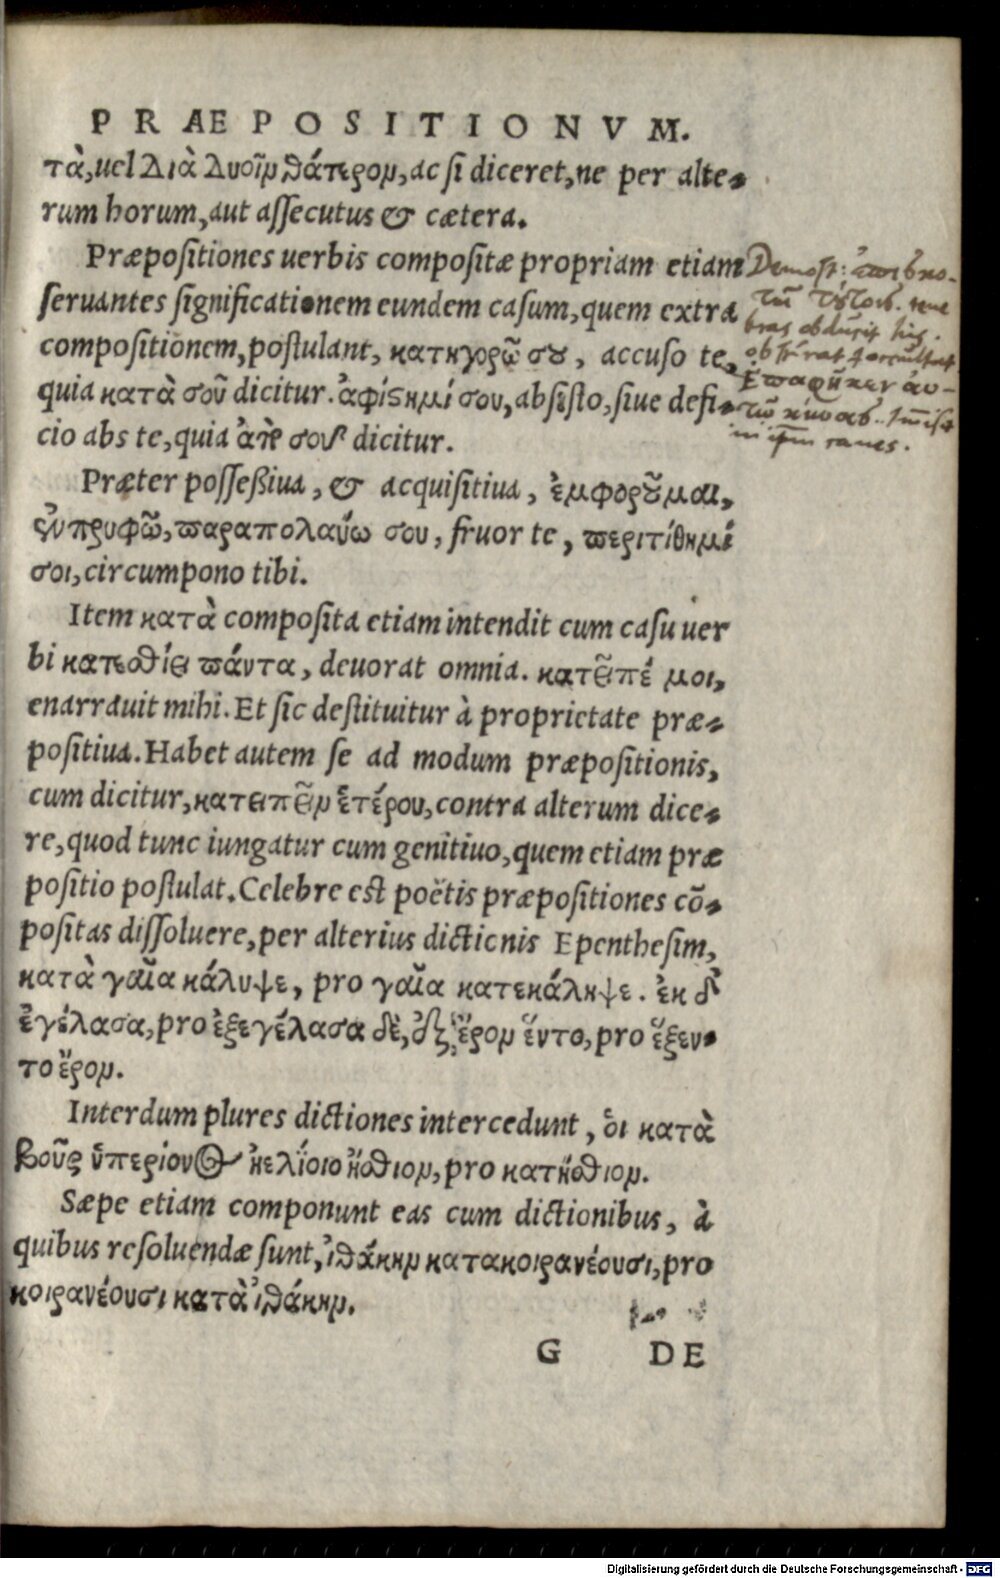 PRÆPOSITIONVM.
τὰ, uel διὰ δυοῖν θάτερον, ac si diceret, ne per alte-
rum horum, aut assecutus & cætera.
Præpositiones uerbis compositæ propriam etiam
seruantes significationem eundem casum, quem extra
compositionem, postulant, κατηγορῶ σȣ, accuso te,
quia κατὰ σοῦ dicitur. ἀφίςημί σου, absisto, siue defi-
cio abs te, quia ἀπὸ σοῦ dicitur.
Præter possessiua, & acquisitiua, ἐμφορȣ͂μαι,
ἐντρυφῶ, παραπολαύω σου, fruor te, περιτίθημί
σοι, circumpono tibi.
Item κατὰ composita etiam intendit cum casu uer
bi κατεσθίει πάντα, deuorat omnia. κατεῖπέ μοι,
enarrauit mihi. Et sic destituitur à proprietate præ-
positiua. Habet autem se ad modum præpositionis,
cum dicitur, κατειπεῖν ἑτέρου, contra alterum dice-
re, quod tunc iungatur cum genitiuo, quem etiam præ
positio postulat. Celebre est poëtis præpositiones cō-
positas dissoluere, per alterius dictionis Epenthesim,
κατὰ γαῖα κάλυψε, pro γαῖα κατεκάληψε. ἐκ δ'
ἐγέλασα, pro ἐξεγέλασα δὲ, ἐξ ἔρον ἕντο, pro ἕξεν-
το ἔρον.
Interdum plures dictiones intercedunt, ὃι κατὰ
βοῦς ὑπερίονος ἠελίοιο ἤσθιον, pro κατήσθιον.
Sæpe etiam componunt eas cum dictionibus, à
quibus resoluendæ sunt, ἰθάκην κατακοιρανέουσι, pro
κοιρανέουσι κατὰ ἰθάκην.
G DE
Demost:
τῶ κύνας. Immisit
in ipsum canes.
Digitalisierung gefördert durch die Deutsche Forschungsgemeinschaft - DFG